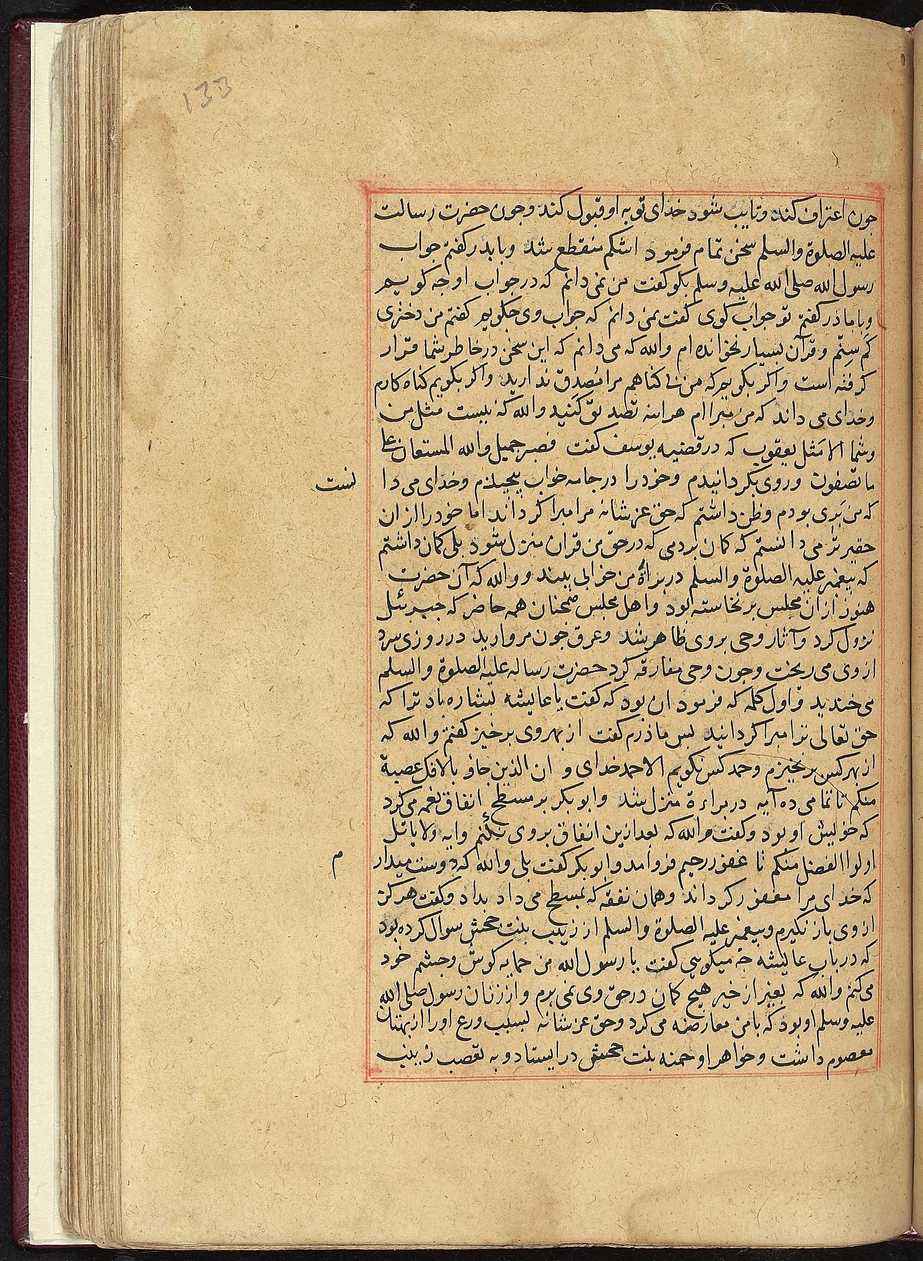 133
جون اعتراف کند و تایب شود خدای توبه او قبول کند و جون حضرت رسالت
علیه الصلوة والسلم سخن تمام فرمود اشکم منقطع شد و با پدر کفتم جواب
رسول الله صلی الله علیه وسلم بکو کفت من نمی دانم که در جواب او جه کویم
و با مادر کفتم تو جواب کوی کفت نمی دانم که جواب وی جکویم کفتم من دختری
کم سنم و قرآن بسیار نخوانده ام والله که می دانم که این سخن در خاطر شما قرار
کرفته است و اکر بکویم که من بی کناهم مرا مصدق ندارید و اکر بکویم کناه کارم
و خدای می داند که من مبرا ام هراینه تصدیق کنید والله که نیست مثل من
و شما الا مثل یعقوب که در قضیه یوسف کفت فصبر جمیل والله المستعان علی
ما تصفون و روی بکردانیدم و خود را در جامه خواب پیجیدم و خدای می دا
نست
که من بری بودم و ظن داشتم که حق عز شانه مرا مبرا کرداند اما خود را از ان
حقیرتر می دانستم که کمان بردمی که در حق من قران منزل شود بلی کمان داشتم
که بیغمبر علیه الصلوة والسلم در براة من خوابی بیند و والله که آن حضرت
هنوز از ان مجلس برنخاسته بود و اهل مجلس همجنان همه حاضر که جبرئیل
نزول کرد و آثار وحی بروی ظاهر شد و عرق جون مروارید در روزی سرد
از وی می ریخت و جون وحی مفارقه کرد حضرت رساله علیه الصلوة والسلم
می خندید و اول کلمه که فرمود ان بود که کفت یا عایشه بشاره باد ترا که
حق تعالی ترا مبرا کردانید بس مادرم کفت از بهر وی برخیز کفتم والله که
از بهر کس برنخیزم و حمد کس نکویم الا حمد خدای و ان الذین جاؤ بالافک عصبة
منکم تا تمامی ده آیه در براءة منزل شد و ابو بکر بر مسطح انفاق نعمه می کرد
که خویش او بود و کفت والله که بعد ازین انفاق بروی نکنم و ایه ولا یاتل
اولوا الفضل منکم تا غفور رحیم فرو امد و ابو بکر کفت بلی والله که دوست میدار
م
که خدای مرا مغفور کرداند و همان نفقه که بمسطح می داد بداد و کفت هرکز
از وی باز نکیرم و بیغمبر علیه الصلوة والسلم از زینب بنت جحش سوال کرده بود
که در باب عایشه جه میکویی کفت یا رسول الله من حمایه کوش و جشم خود
می کنم والله که بغیر از خیر هیج کمان در حق وی نمی برم و از زنان رسول صلی الله
علیه وسلم او بود که با من معارضه می کرد و حق عز شانه بسبب ورع او را از
معصوم داشت و خواهر او حمنه بنت جحش در ایستاد و به تعصب زینب